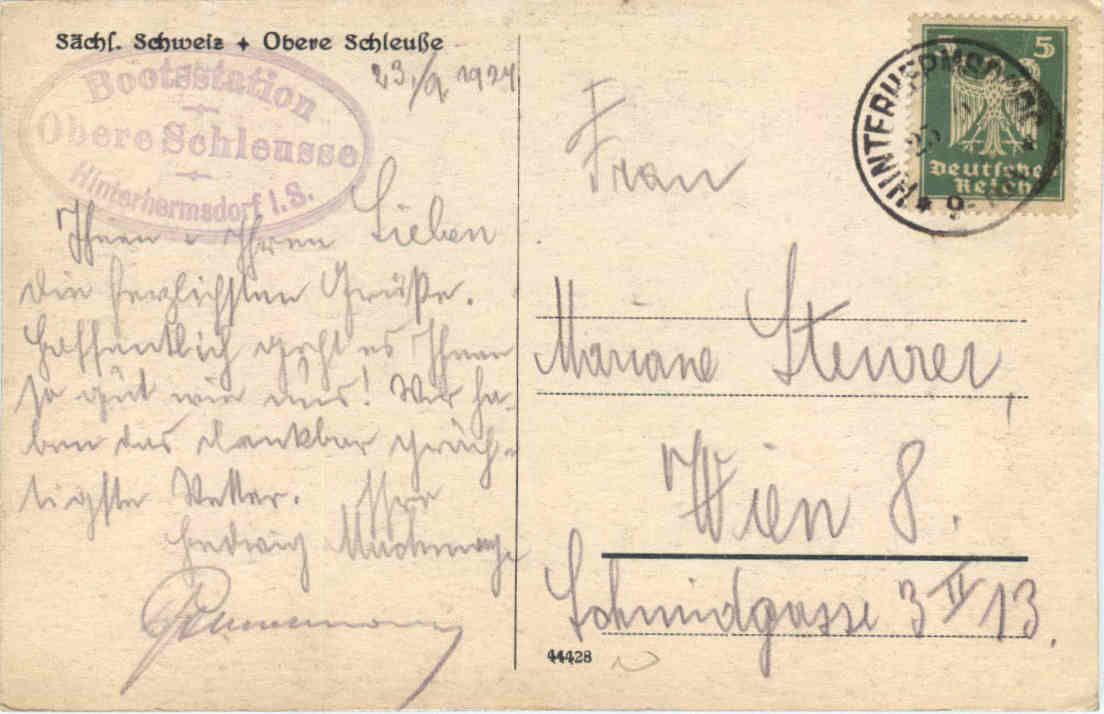 Sächs. Schweiz ✦ Obere Schleuße
Bootsstation
Obere Schleusse
Hinterhermsdorf i. S.
Ihnen u Ihren Lieben
die herzlichsten Grüße.
Hoffentlich geht es Ihnen
so gut wie uns! Wir ha-
ben das denkbar präch-
tigste Wetter. Ihre
Hedwig
5 5
Deutsches
Reich
HINTERHERMSDORF
Frau
Mariane Steurer,
Wien 8.
Schmidgasse 3 II 13.
44428